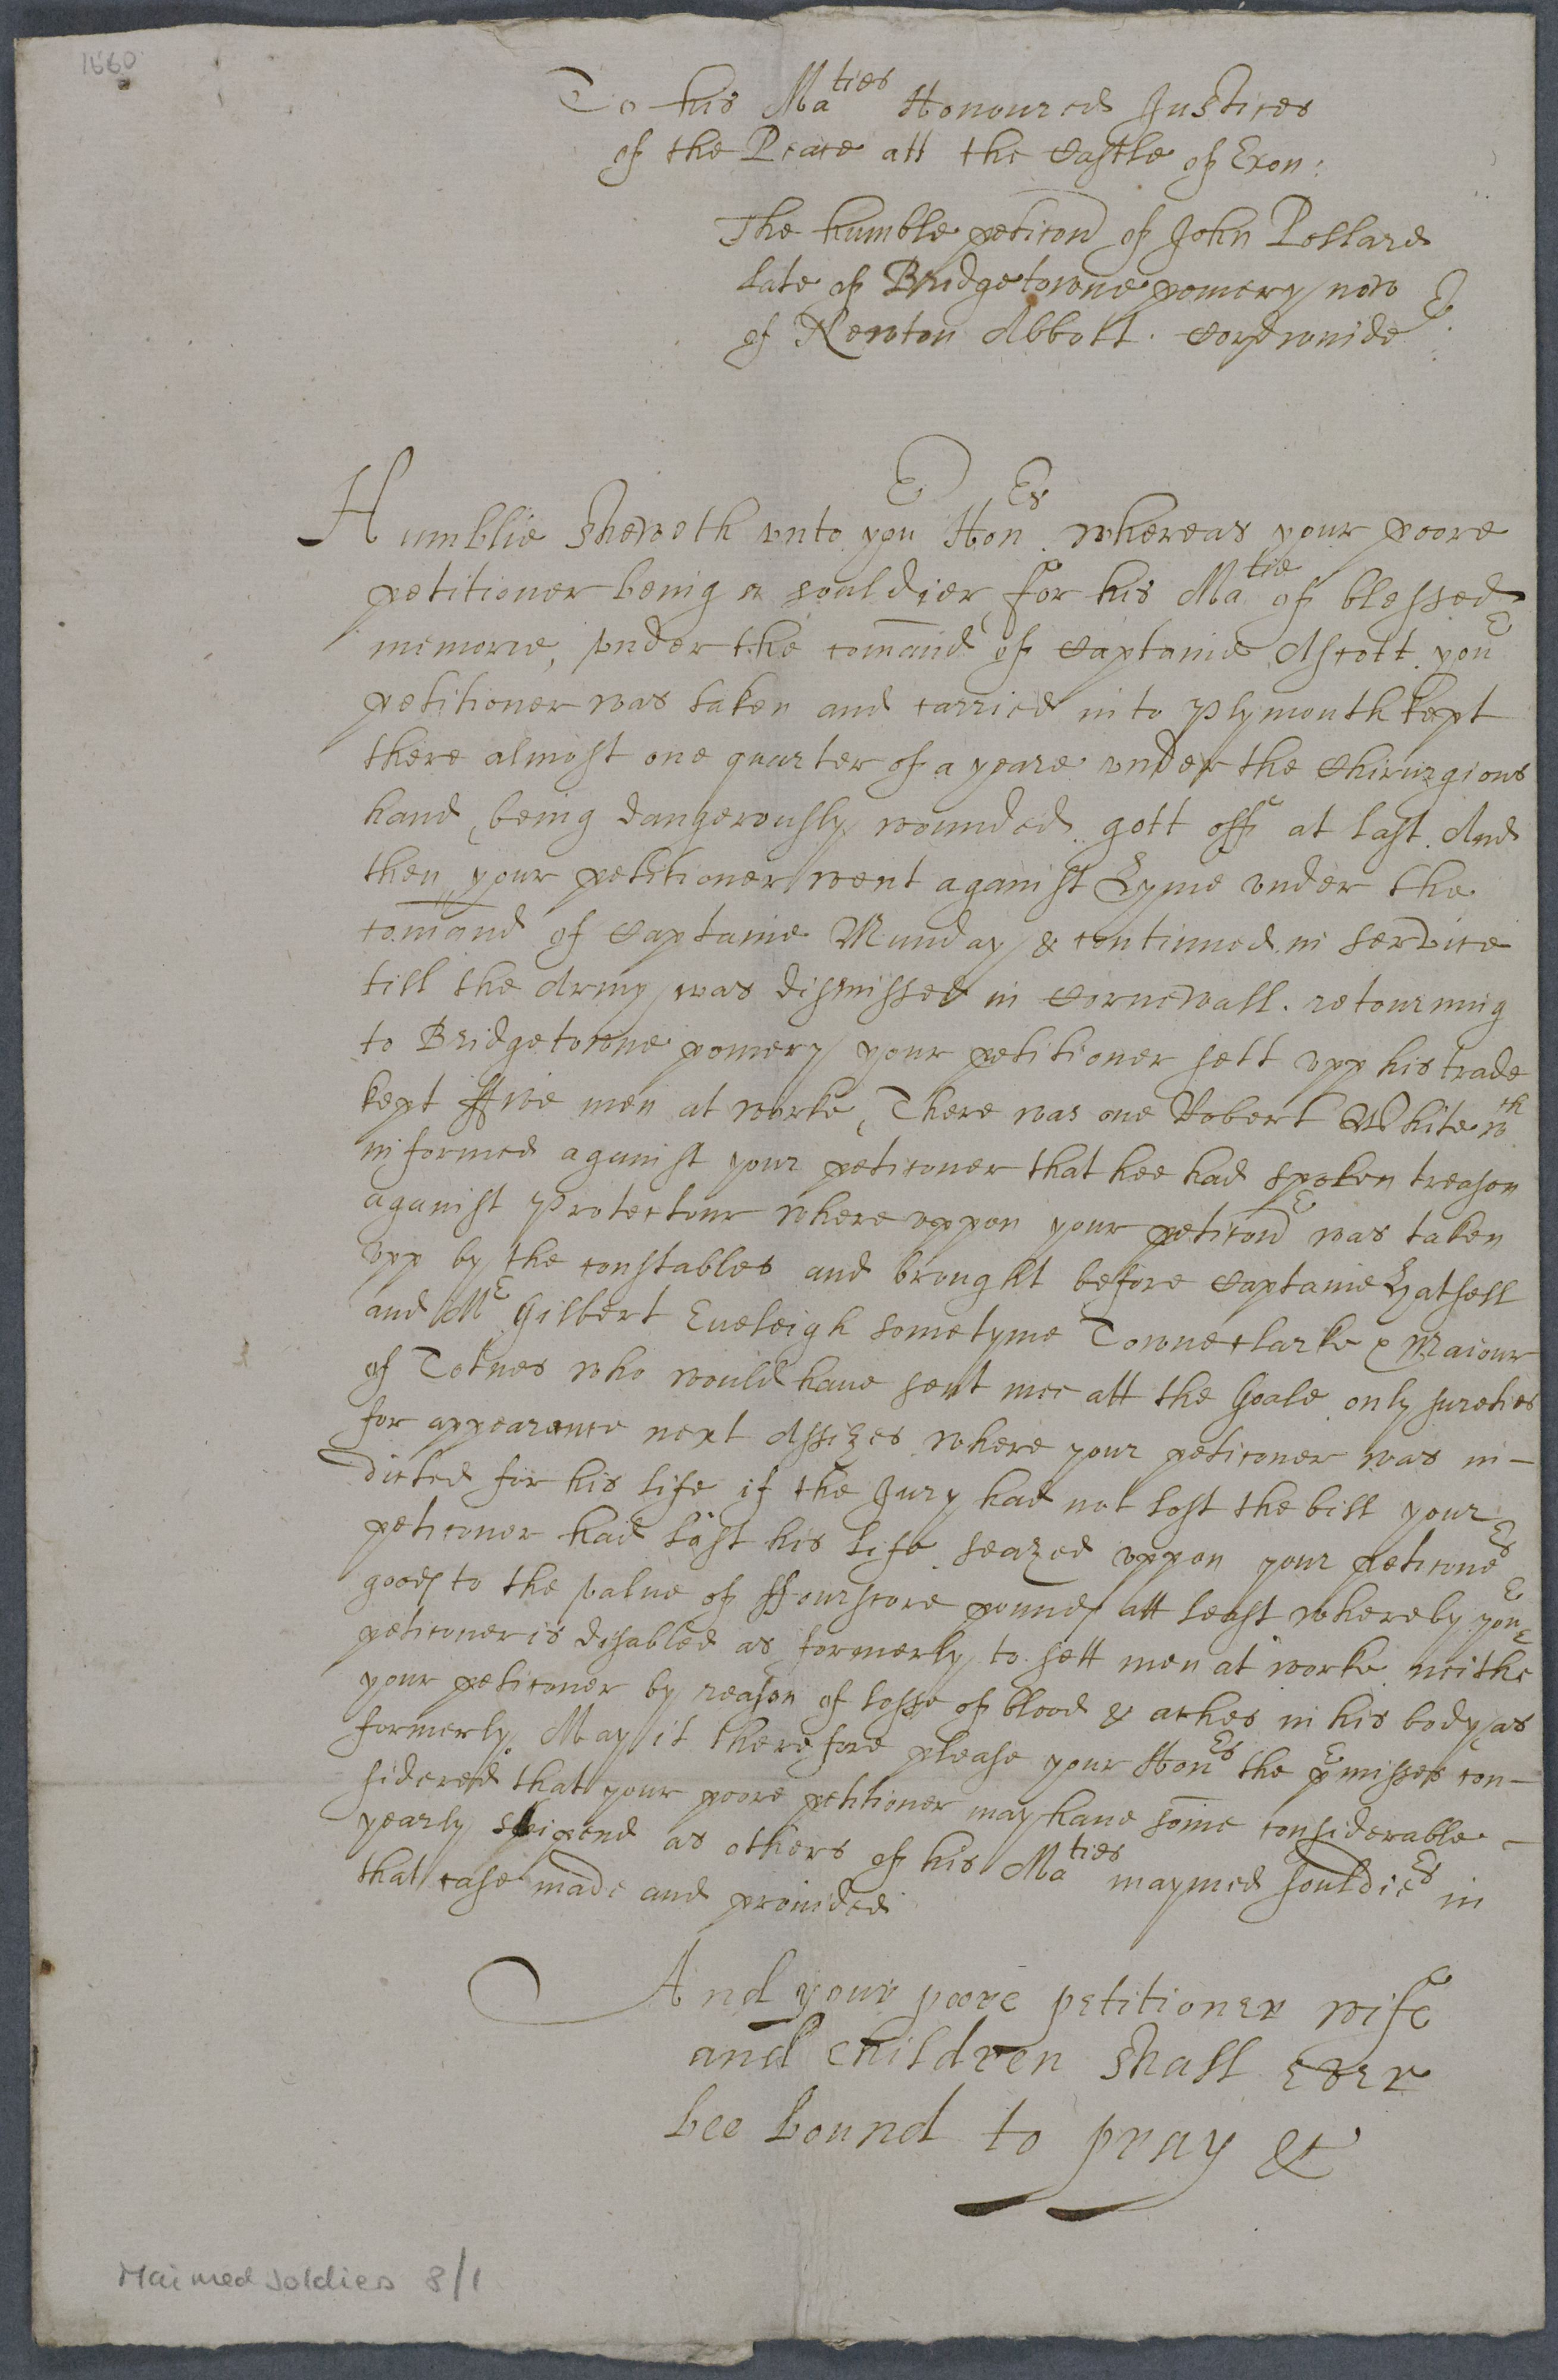 1660
To his Ma^ties Honoured Justices
of the Peace att the Castle of Exon:
The humble peticon of John Pollard
late of Bridgetowne pomery now
of Newton Abbott. Cordwinder
Humblie Sheweth vnto your Hon^rs. whereas your poore
petitioner being a souldier for his Ma^tie of blessed
memorie, vnder the comaund of Captaine Ascott. your
petitioner was taken and carried into Plymouth kept
there almost one quarter of a yeare vnder the Chirurgions
hand, being dangerously wounded. gott off at last. And
then your petitioner went against Lyme vnder the
comand of Captaine Munday & continued in service
till the Army was dismissed in Cornewall. retourning
to Bridgetowne pomery your petitioner sett vpp his trade
kept ffive men at worke, There was one Robert White w^ch
informed against your peticoner that hee had spoken treason
against Protectour where vppon your peticon^r was taken
vpp by the constables and brought before Captaine Hatsell
and M^r Gilbert Eveleigh sometyme Towneclarke & Maiour
of Totnes who would have sent mee att the Goale only sureties
for appearance next Assizes where your peticoner was in-
dicted for his life if the Jury had not lost the bill your
peticoner had lost his life. seazed vppon your peticone^rs
goods to the value of ffourscore pounds att least whereby you^r
peticoner is disabled as formerly to sett men at worke neithe^r
your peticoner by reason of losse of blood & aches in his body as
formerly May it therefore please your Hon^rs the p^rmisses con-
sidered that your poore petitioner may have some considerable -
yearly stipend as others of his Ma^ties maymed souldie^rs in
that case made and provided
And your poore petitioner wife
and children shall ever
bee bound to pray &c
Maimed Soldiers 8/1